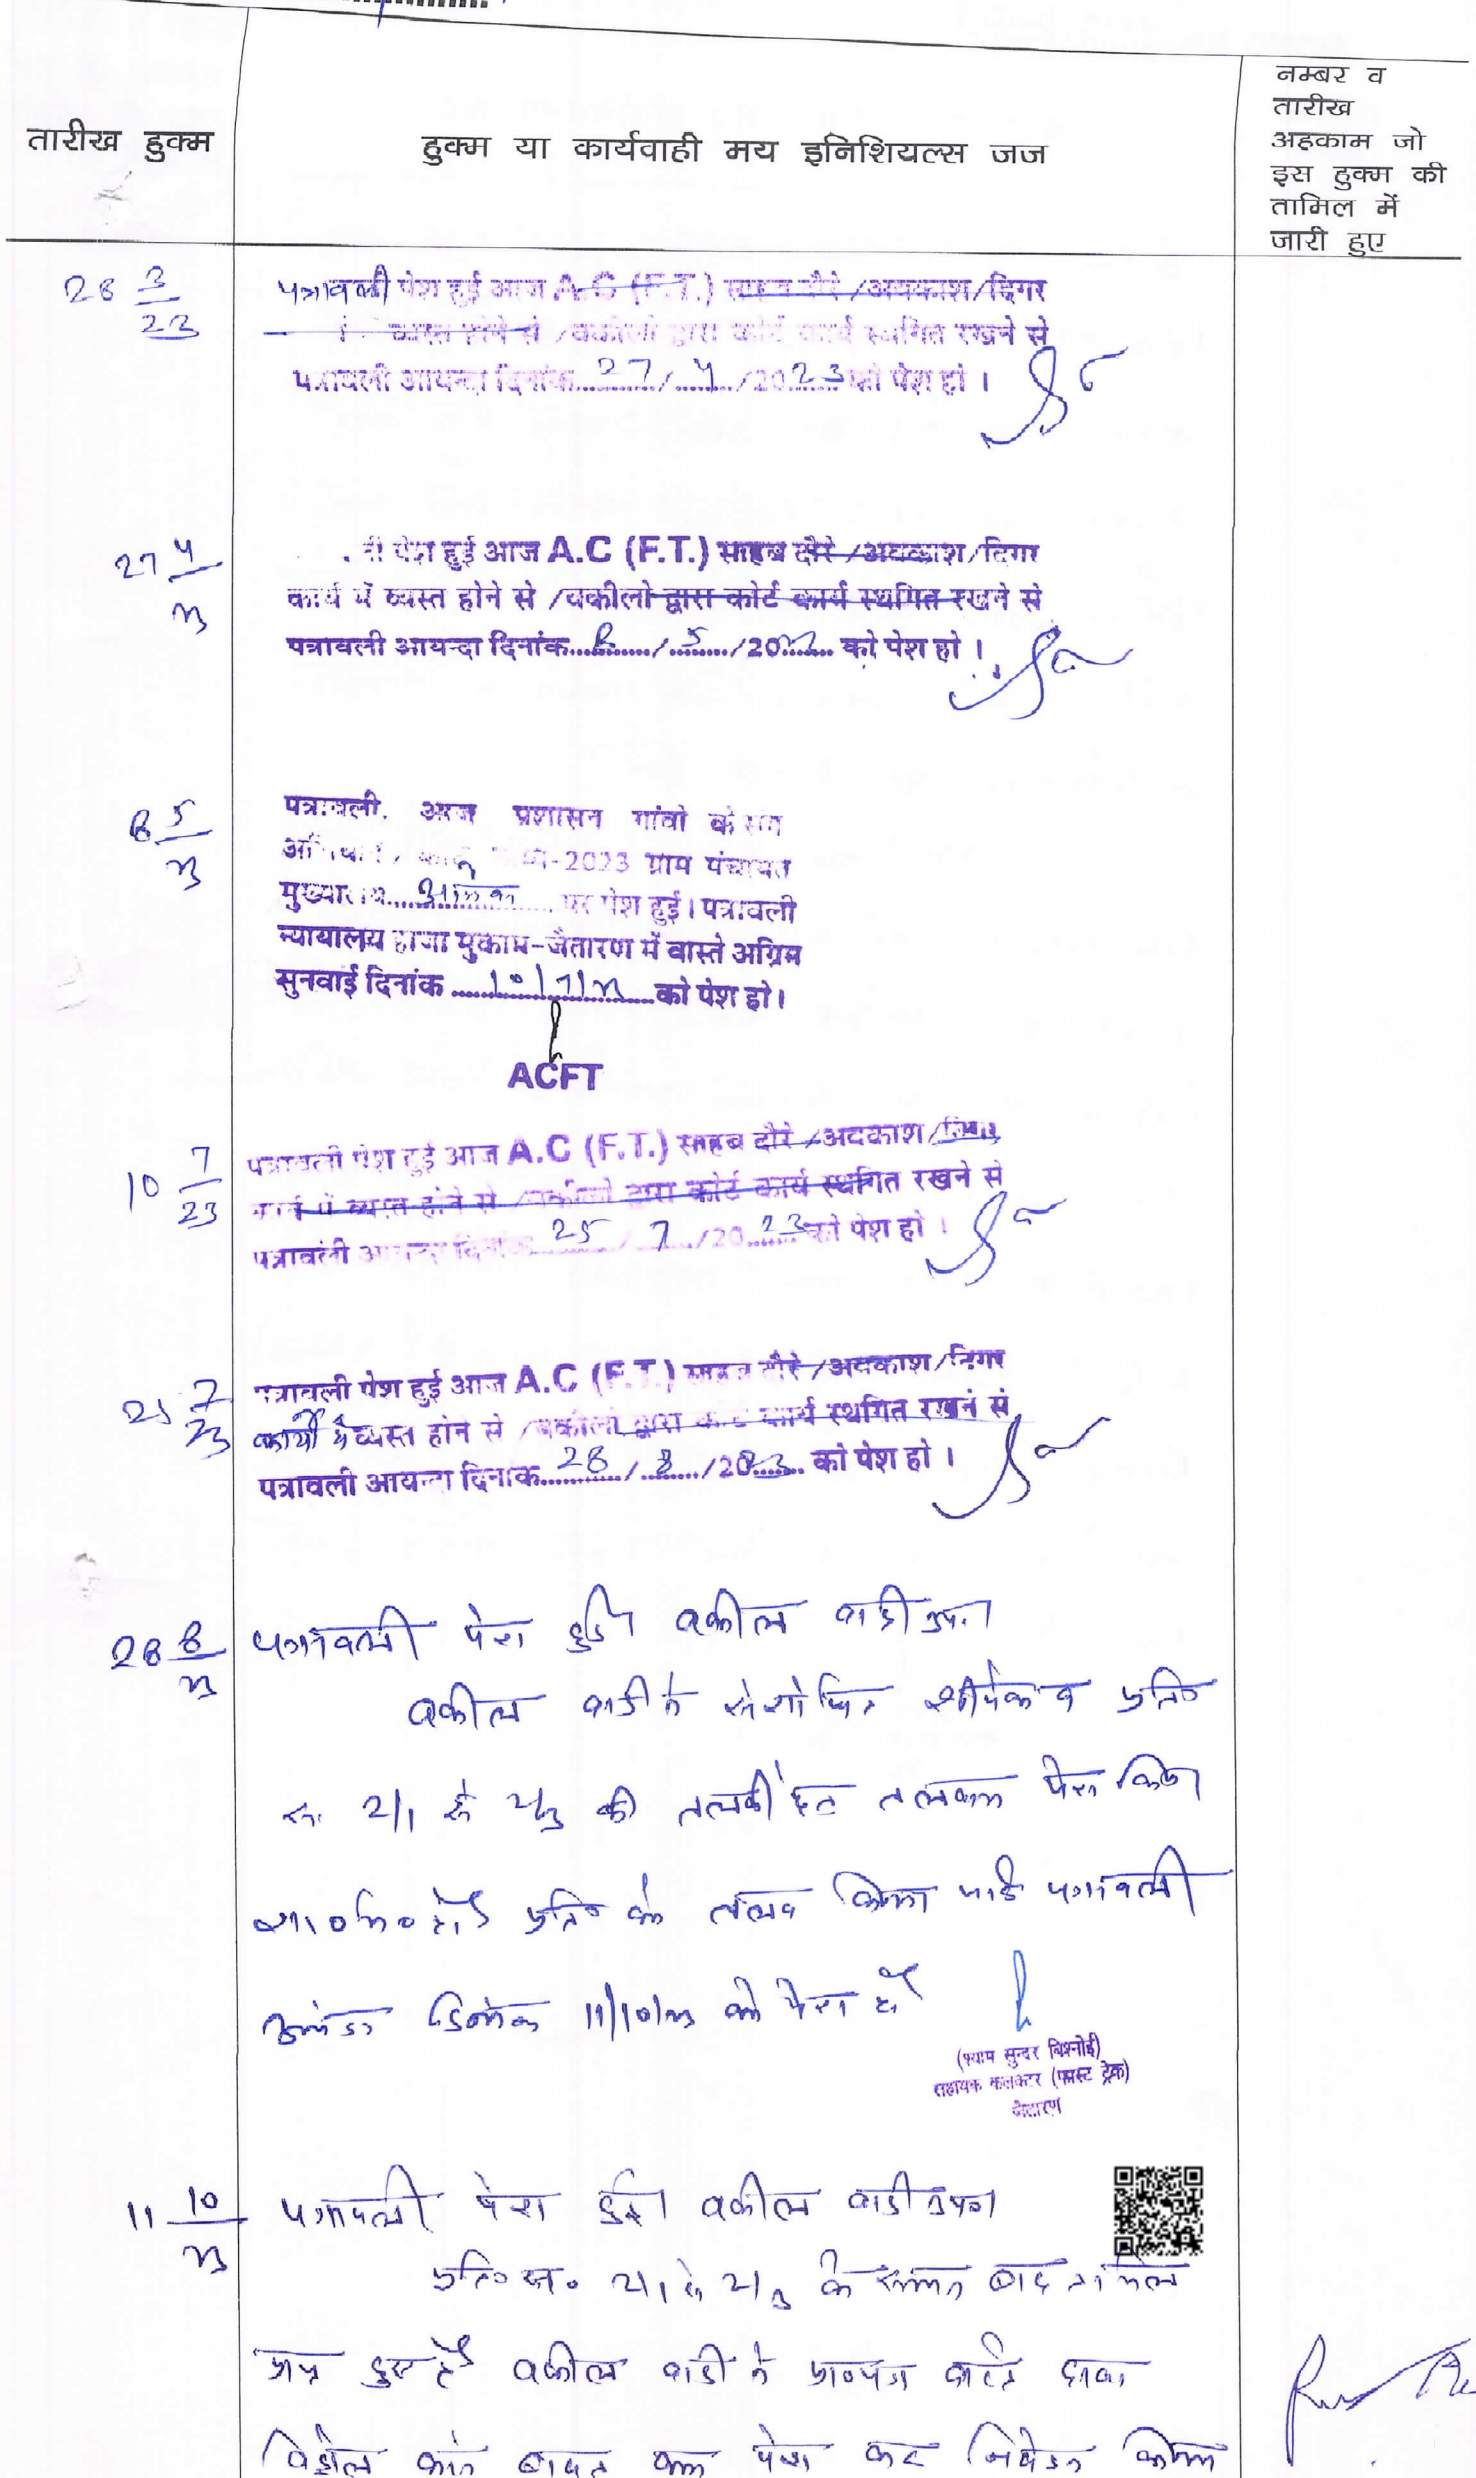 तारीख हुक्म
हुक्म या कार्यवाही मय इनिशियल्स जज
नम्बर व
तारीख
अहकाम जो
इस हुक्म की
तामिल में
जारी हुए
28 3/23
पत्रावली पेश हुई आज A.C (F.T.) साहब दौरे /अवकाश/दिगर
व्यस्त होने से /वकीलो द्वारा कोर्ट कार्य स्थगित रखने से
पत्रावली आयन्दा दिनांक 27/4/2023 को पेश हो ।
27 4/23
पेश हुई आज A.C (F.T.) साहब दौरे /अवकाश/दिगर
कार्य में व्यस्त होने से /वकीलो द्वारा कोर्ट कार्य स्थगित रखने से
पत्रावली आयन्दा दिनांक 8/5/2023 को पेश हो ।
8 5/23
पत्रावली. आज प्रशासन गांवो के संग
-2023 ग्राम पंचायत
मुख्यालय पर पेश हुई। पत्रावली
न्यायालय हाजा मुकाम-जैतारण में वास्ते अग्रिम
सुनवाई दिनांक 10/7/23 को पेश हो।
ACFT
10 7/23
पत्रावली पेश हुई आज A.C (F.T.) साहब दौरे /अवकाश/दिगर
कार्य में व्यस्त होने से /वकीलो द्वारा कोर्ट कार्य स्थगित रखने से
पत्रावली आयन्दा दिनांक 25/7/2023 को पेश हो ।
25 7/23
पत्रावली पेश हुई आज A.C (F.T.) साहब दौरे /अवकाश/दिगर
कार्यो में व्यस्त होने से /वकीलो द्वारा कोर्ट कार्य स्थगित रखने से
पत्रावली आयन्दा दिनांक 28/8/2023 को पेश हो ।
28 8/23
पत्रावली पेश हुई। वकील वादी उप०।
वकील वादी ने संशोधित शीर्षक व प्रति०
स० 2/1 से 2/3 की तलबी हेतु तलबाना पेश किया
शा०मि० हो। प्रति० को तलब किया जावे पत्रावली
आयंदा दिनांक 11/10/23 को पेश हो
(श्याम सुन्दर बिश्नोई)
सहायक कलक्टर (फास्ट ट्रेक)
जैतारण
11 10/23
पत्रावली पेश हुई। वकील वादी उप०।
प्रति० स० 2/1 से 2/3 के सम्मन बाद तामिल
प्राप्त हुए है। वकील वादी ने प्रा०पत्र वास्ते दावा
विड्रोल करने बाबत पेश कर निवेदन किया